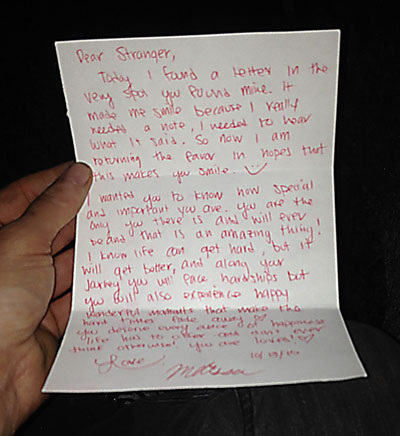 Dear Stranger,
Today I found a letter in the
very spot you found mine. It
made me smile because I really
needed a note, I needed to hear
what it said. So now I am
returning the favor in hopes that
this makes you smile.
I wanted you to know how special
and important you are. you are the
only you there is and will ever
be and that is an amazing thing!
I know life can get hard, but it
will get better, and along your
journey you will face hardships but
you will also experience happy
wonderful moments that make the
hard times fade away ♡
you deserve every ounce of happiness
life has to offer and don't ever
think otherwise! you are loved! ♡
Love,